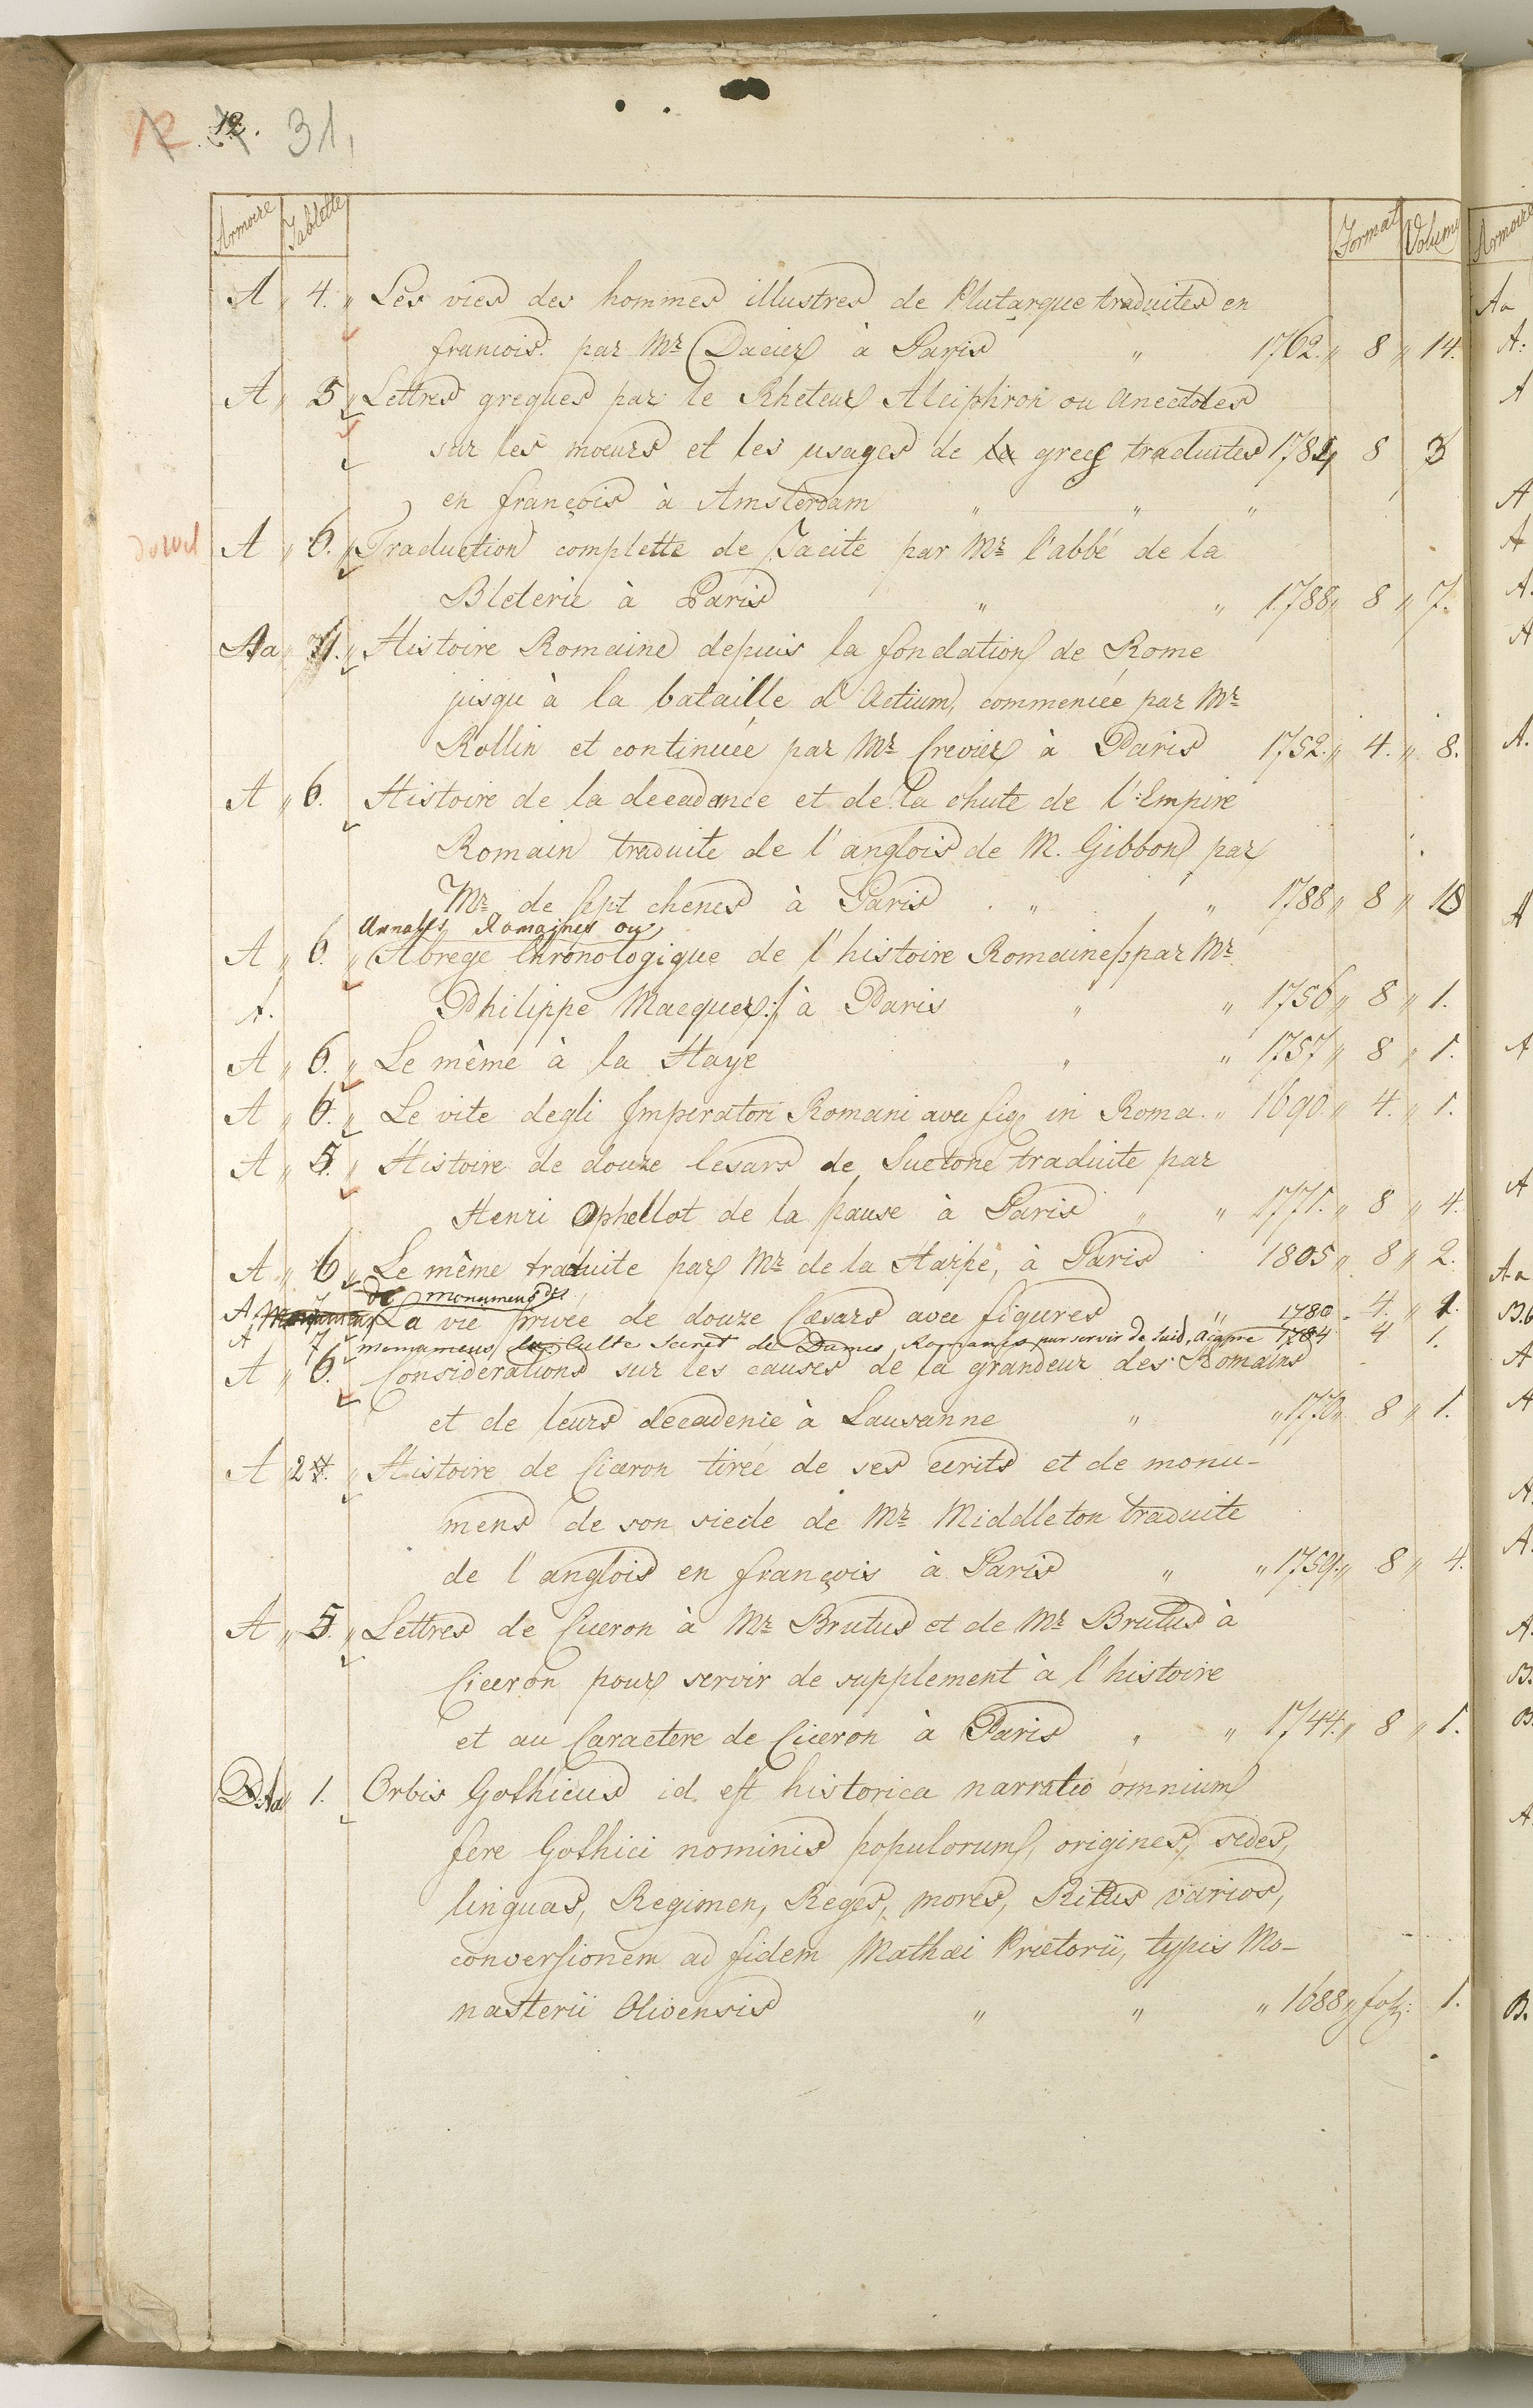 12. 12. 31,
Armoire Tablette Format Volume
A „ 4. „ Les vies des hommes illustres de Plutarque traduites en
francois. par Mr Dacier à Paris „ 1762. „ 8 „ 14.
A „ 5 „ Lettres greques par le Rheteur Alciphron ou Anecdotes
sur les mœurs et les usages de la grecs traduites 1784 8 3
en françois à Amsterdam „ „ „
A „ 6. „ Traduction complette de Tacite par Mr l'abbé de la
Bleterie à Paris „ „ 1788 „ 8 „ 7.
Aa „ „ Histoire Romaine depuis la fondation de Rome
jusqu'à la bataille d'Actium, commencée par Mr
Rollin et continuée par Mr Crevier à Paris 1752. „ 4. „ 8.
A „ 6. Histoire de la decadence et de la chute de l'Empire
Romain traduite de l'anglois de M. Gibbon par
Mr de sept chenes à Paris . „ „ 1788 „ 8 „ 18
Annales Romaines ou
A „ 6. „ Abrege Chronologique de l'histoire Romaine /: par Mr
A. Philippe Macquer :/ à Paris „ „ 1756 „ 8 „ 1.
A „ 6. „ Le même à la Haye „ „ 1757 „ 8 „ 1.
A „ 6. „ Le vite degli Imperatori Romani avec fig in Roma. „ 1690. „ 4. „ 1.
A „ 5. „ Histoire de douze Cesars de Suetone traduite par
Henri Ophellot de la pause à Paris „ „ 1771. „ 8 „ 4.
A „ 6 „ Le même traduite par Mr de la Harpe, à Paris 1805 „ 8 „ 2.
de monumens
A La vie privée de douze Cæsars avec figures „ 1780 4. „ 1.
A 7 monumens du Culte Secret de Dames Romaines pur servir de Suid. 1784 4 1.
A „ 6. Considerations sur les causes de la grandeur des Romains
et de leurs decadence à Lausanne „ „ 1770 „ 8 „ 1.
A 2 „ Histoire de Ciceron tirée de ses ecrits et de monu-
mens de son siecle de Mr Middleton traduite
de l'anglois en françois à Paris „ „ 1759. „ 8 „ 4.
A „ 5. „ Lettres de Ciceron à Mr Brutus et de Mr Brutus à
Ciceron pour servir de supplement à l'histoire
et au Caractere de Ciceron à Paris „ „ 1744. „ 8 „ 1.
Aa „ 1. Orbis Gothicus id est historica narratio omnium
fere Gothici nominis populorum, origines, sedes,
linguas, Regimen, Reges, mores, Ritus varios,
conversionem ad fidem Mathæi Prætorii, typis Mo-
nasterii Olivensis „ „ „ 1688 „ fol: 1.